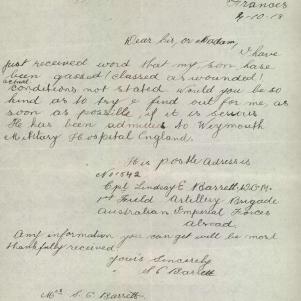 Frances
4-10-18
Dear Sir, or Madam,
I have
just received word that my son have
been gassed (classed as wounded)
actual
conditions not stated would you be so
kind as to try & find out for me, as
soon as possible, if it is serious
He has been admitted to Weymouth
Military Hospital England.
His postle adress is
No 1542
Cpl Lindsay E Barrett, D.C.M.
1st Field Artillery Brigade
Australian Imperial Forces
abroad
Any information you can get will be most
thankfully received
yours Sincerely
S E Barrett
Mrs S. E Barrett